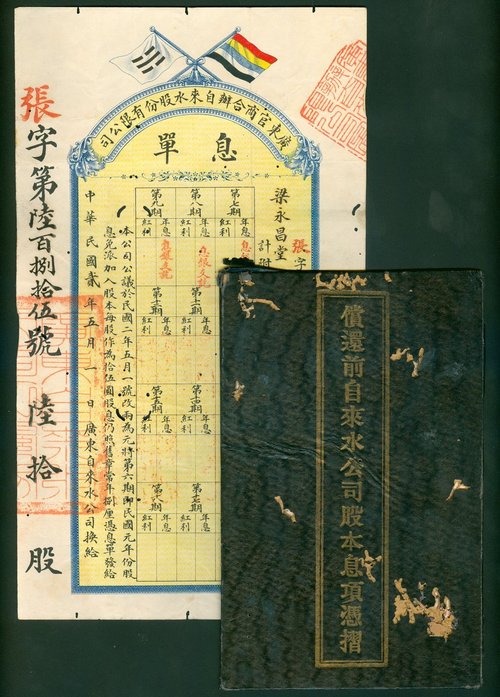 廣東官商合辦自來水股份有限公司
息單
張字
梁永昌堂
計
第七期
第八期
第九期
年息
紅利
年息
紅利
年息
紅利
息
息
第十一期
第十二期
年息
紅利
年息
紅利
第十四期
第十五期
年息
紅利
年息
紅利
第十七期
第十八期
年息
紅利
年息
紅利
本公司公議於民國二年五月一號改兩為元將第六期即民國元年份股
息免派加入股本每股作為拾伍圓股息仍照舊章常年捌厘憑息單發給
中華民國貳年五月一日 廣東自來水公司換給
張字第陸百捌拾伍號 陸拾股
償還前自來水公司股本息項憑摺